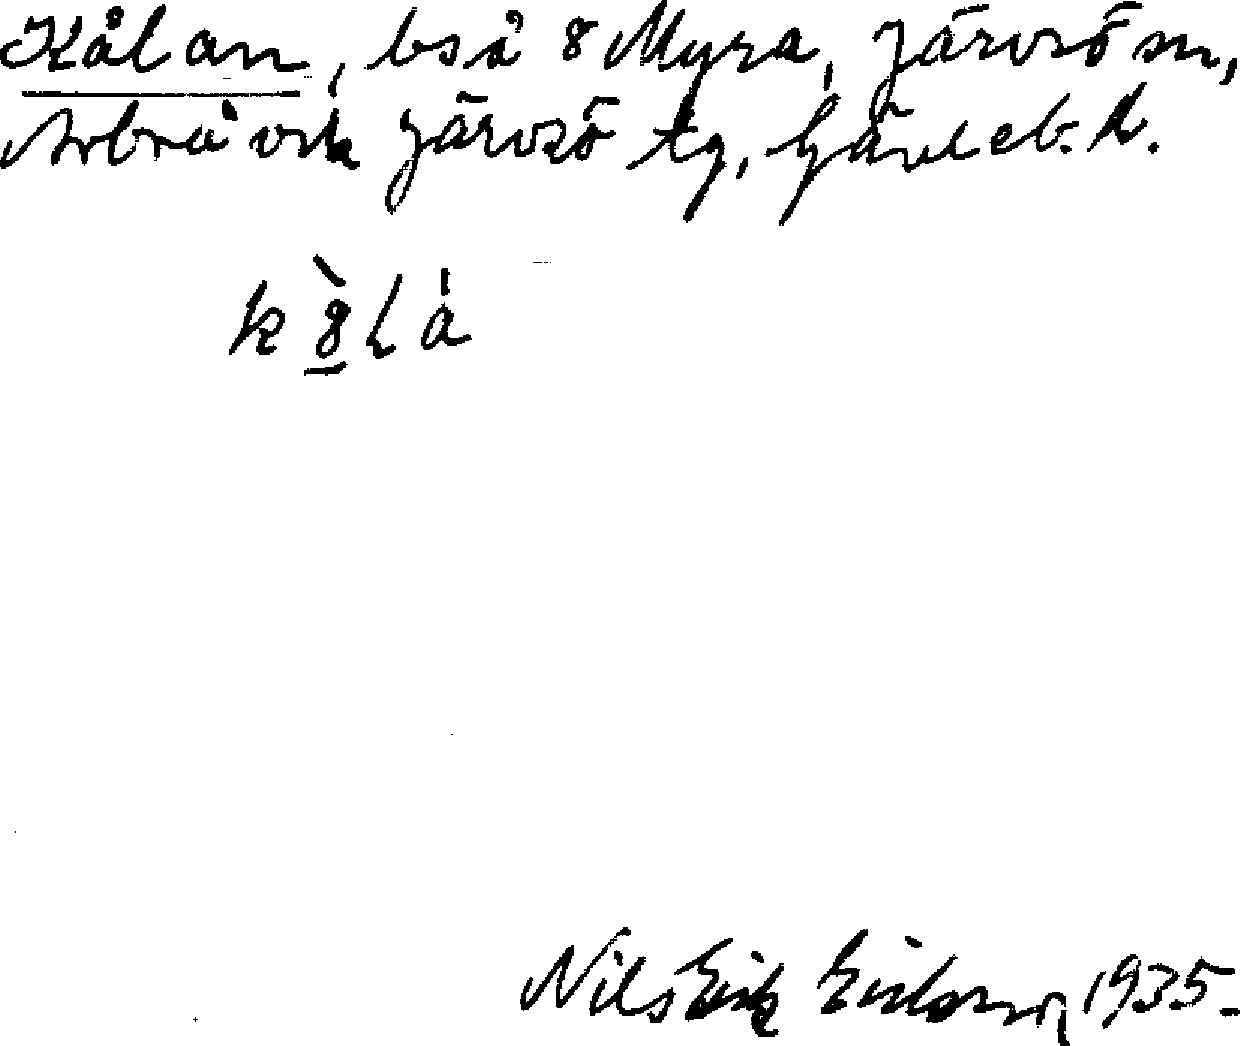 Kålan, bså 8 Myra, Järvsö sn,
Arbrå och Järvsö tg, Gävleb. l.
Nils Erik Eriksson 1935.